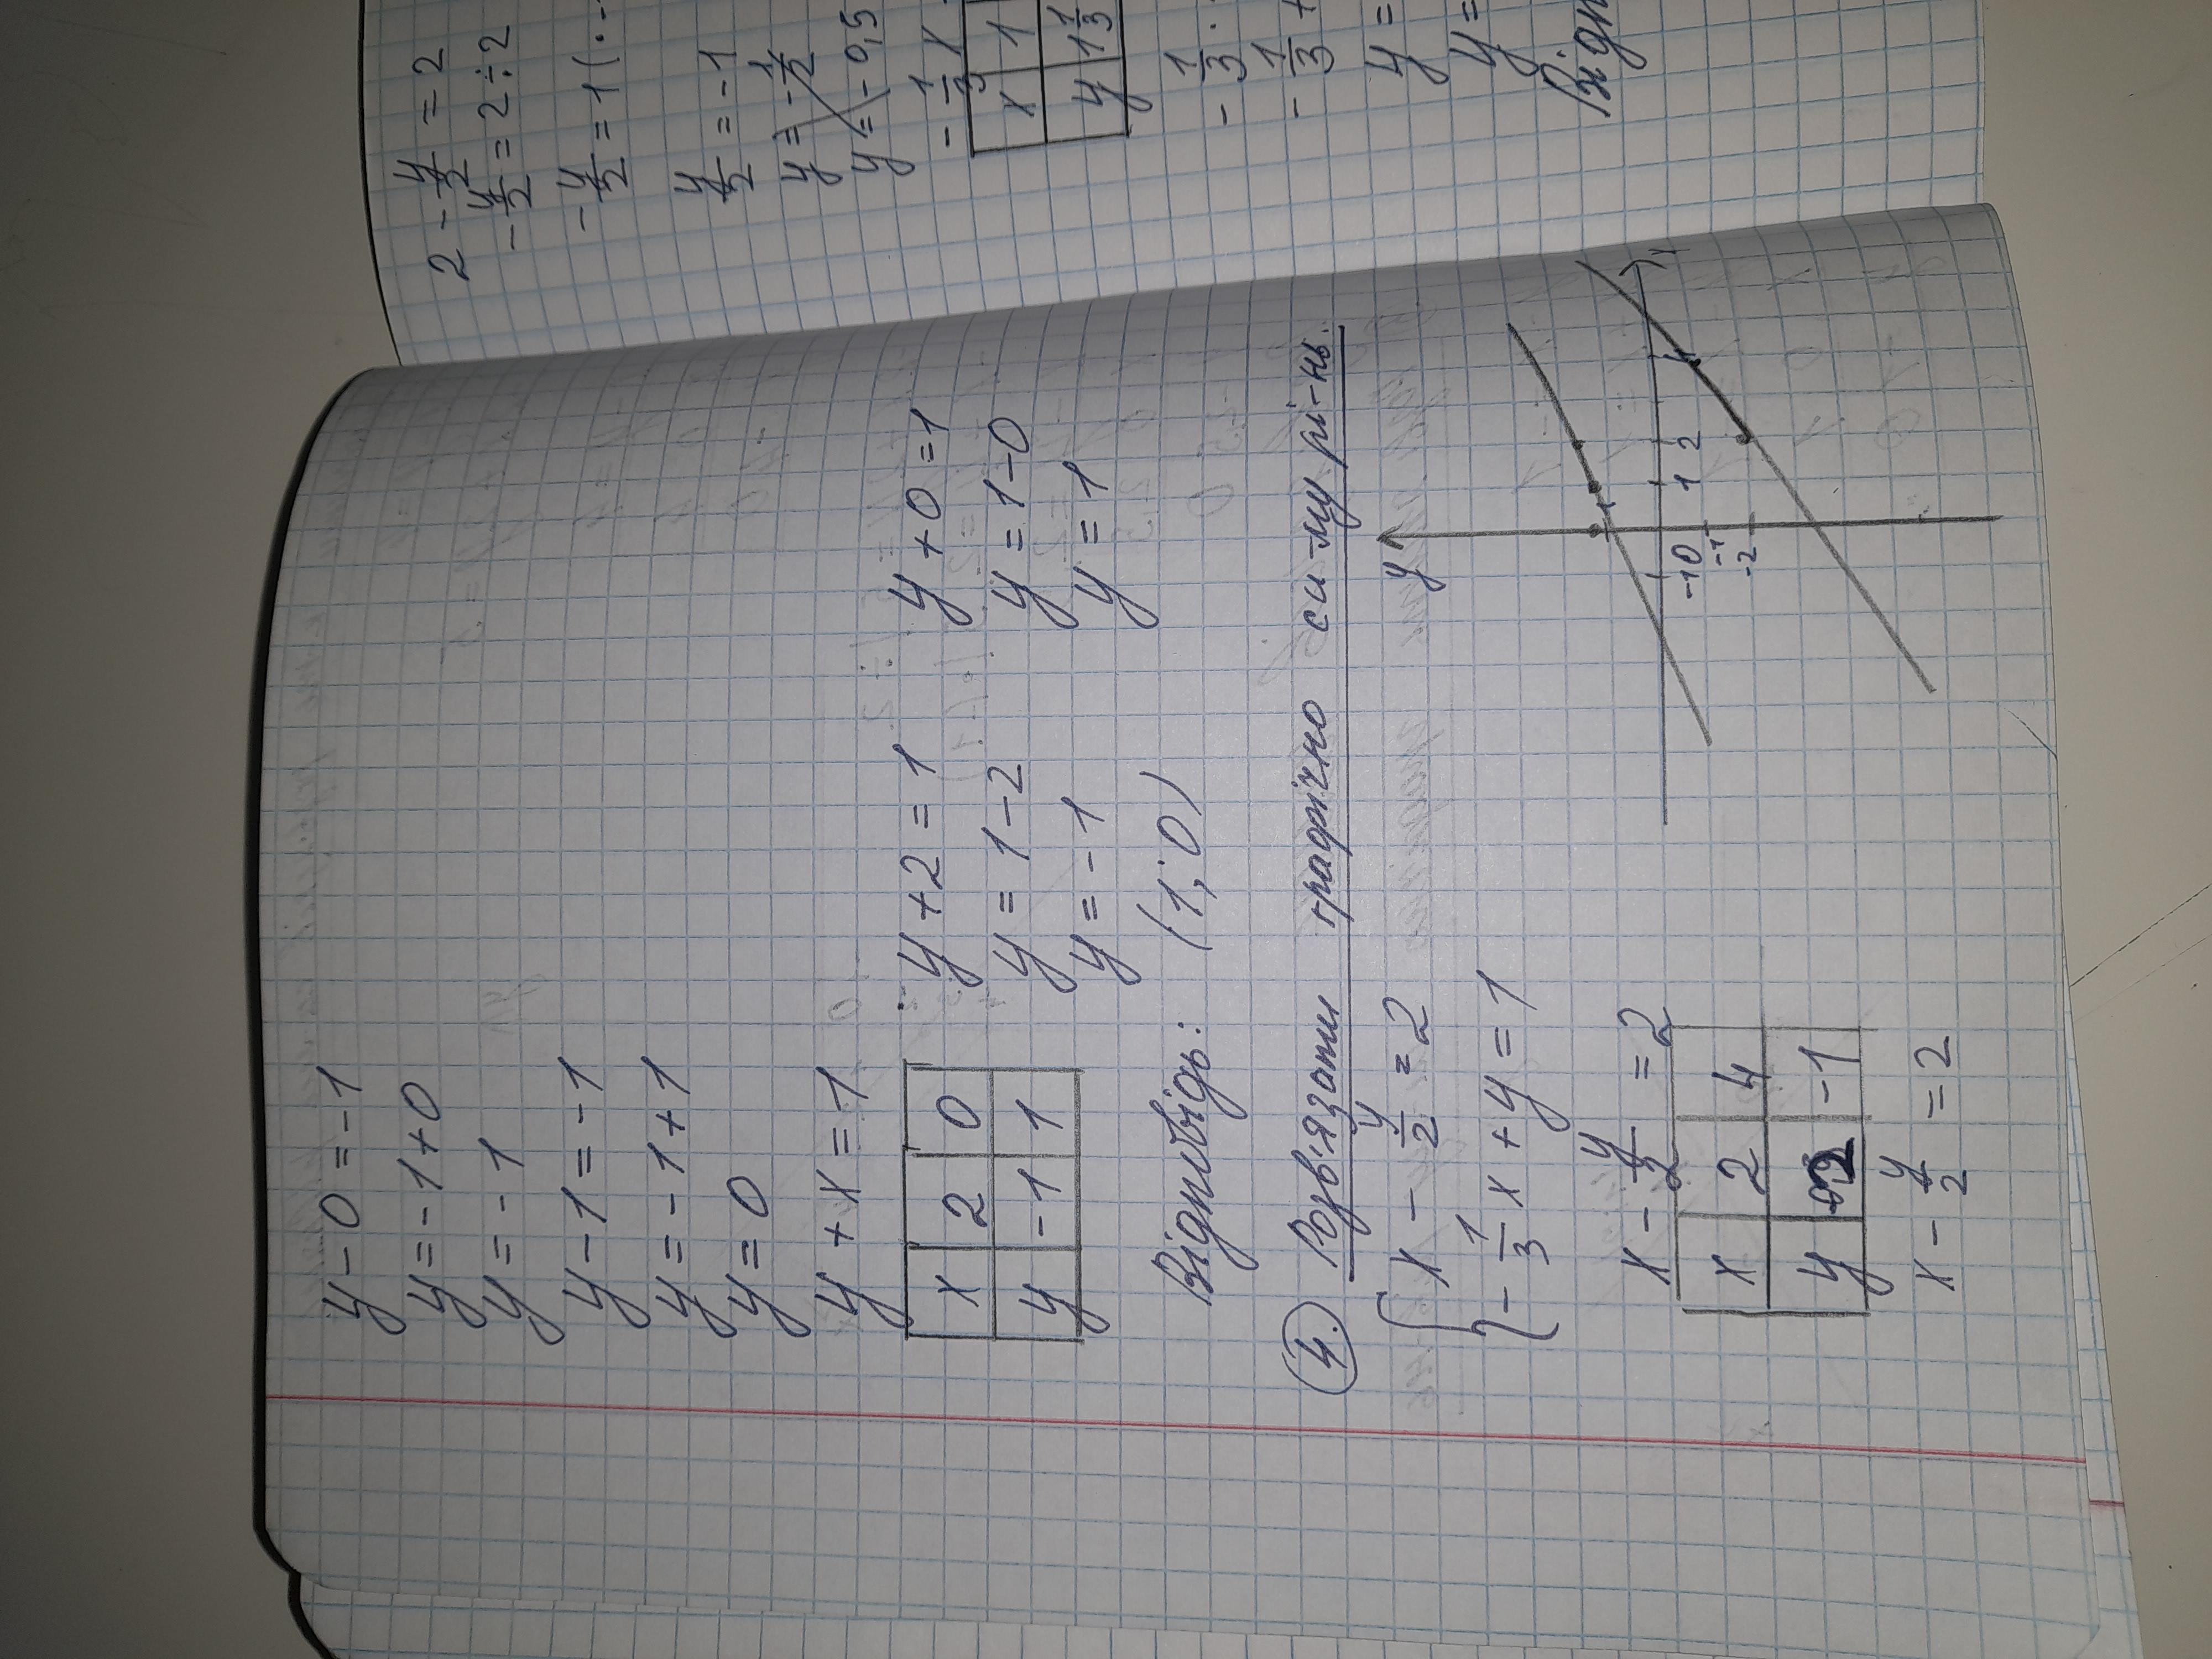 y - 0 = -1
y = -1 + 0
y = -1
y - 1 = -1
y = -1 + 1
y = 0
y + x = 1
x 2 0
y -1 1
y + 2 = 1
y = 1 - 2
y = -1
y + 0 = 1
y = 1 - 0
y = 1
Відповідь: (1; 0)
4. Розв'язати графічно си-му рі-нь.
{ x - y/2 = 2
- 1/3 x + y = 1
x - y/2 = 2
x 2 4
y -1
x - y/2 = 2
y
1
-1 0 1 2 4
-1
-2
2 - y/2 = 2
- y/2 = 2 ÷ 2
- y/2 = 1 (. -
y/2 = -1
y = - 1/2
y = -0,5
- 1/3 x
x 1
y 1 1/3
- 1/3 .
- 1/3 +
y =
y =